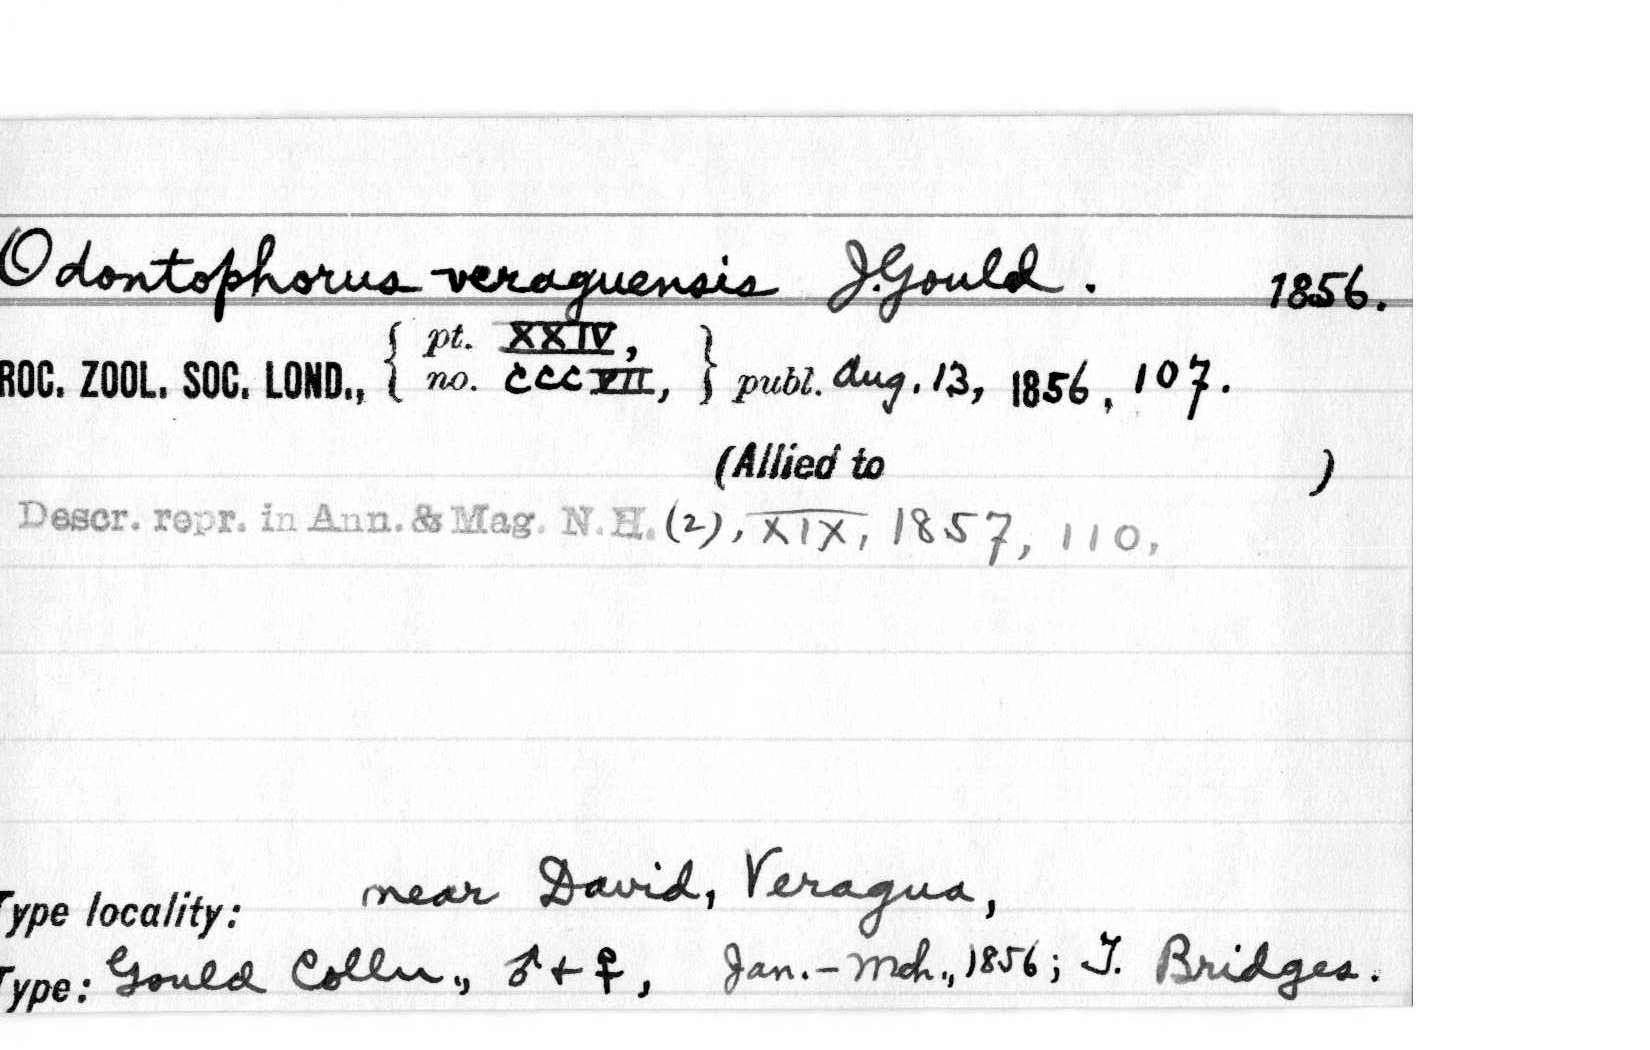 Odontophorus veraguensis J. Gould. 1856.
ROC. ZOOL. SOC. LOND., { pt. XXIV, no. CCCVII, } publ. Aug. 13, 1856, 107.
(Allied to )
Descr. repr. in Ann. & Mag. N.H. (2), XIX, 1857, 110,
near David, Veragua,
Type locality:
Type: Gould Colln., ♂ + ♀, Jan. - Mch., 1856; T. Bridges.